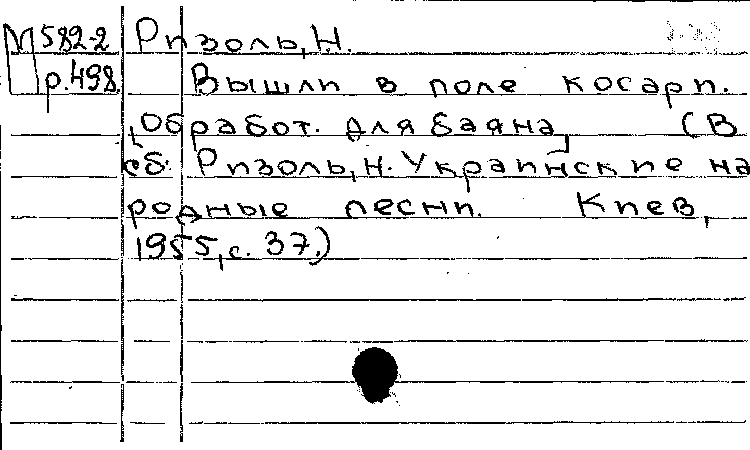 М 582-2 Ризоль, Н.
р.498 Вышли в поле косари.
[Обработ. для баяна] (В
сб. Ризоль, Н. Украинские на
родные песни. Киев,
1955, с. 37.)